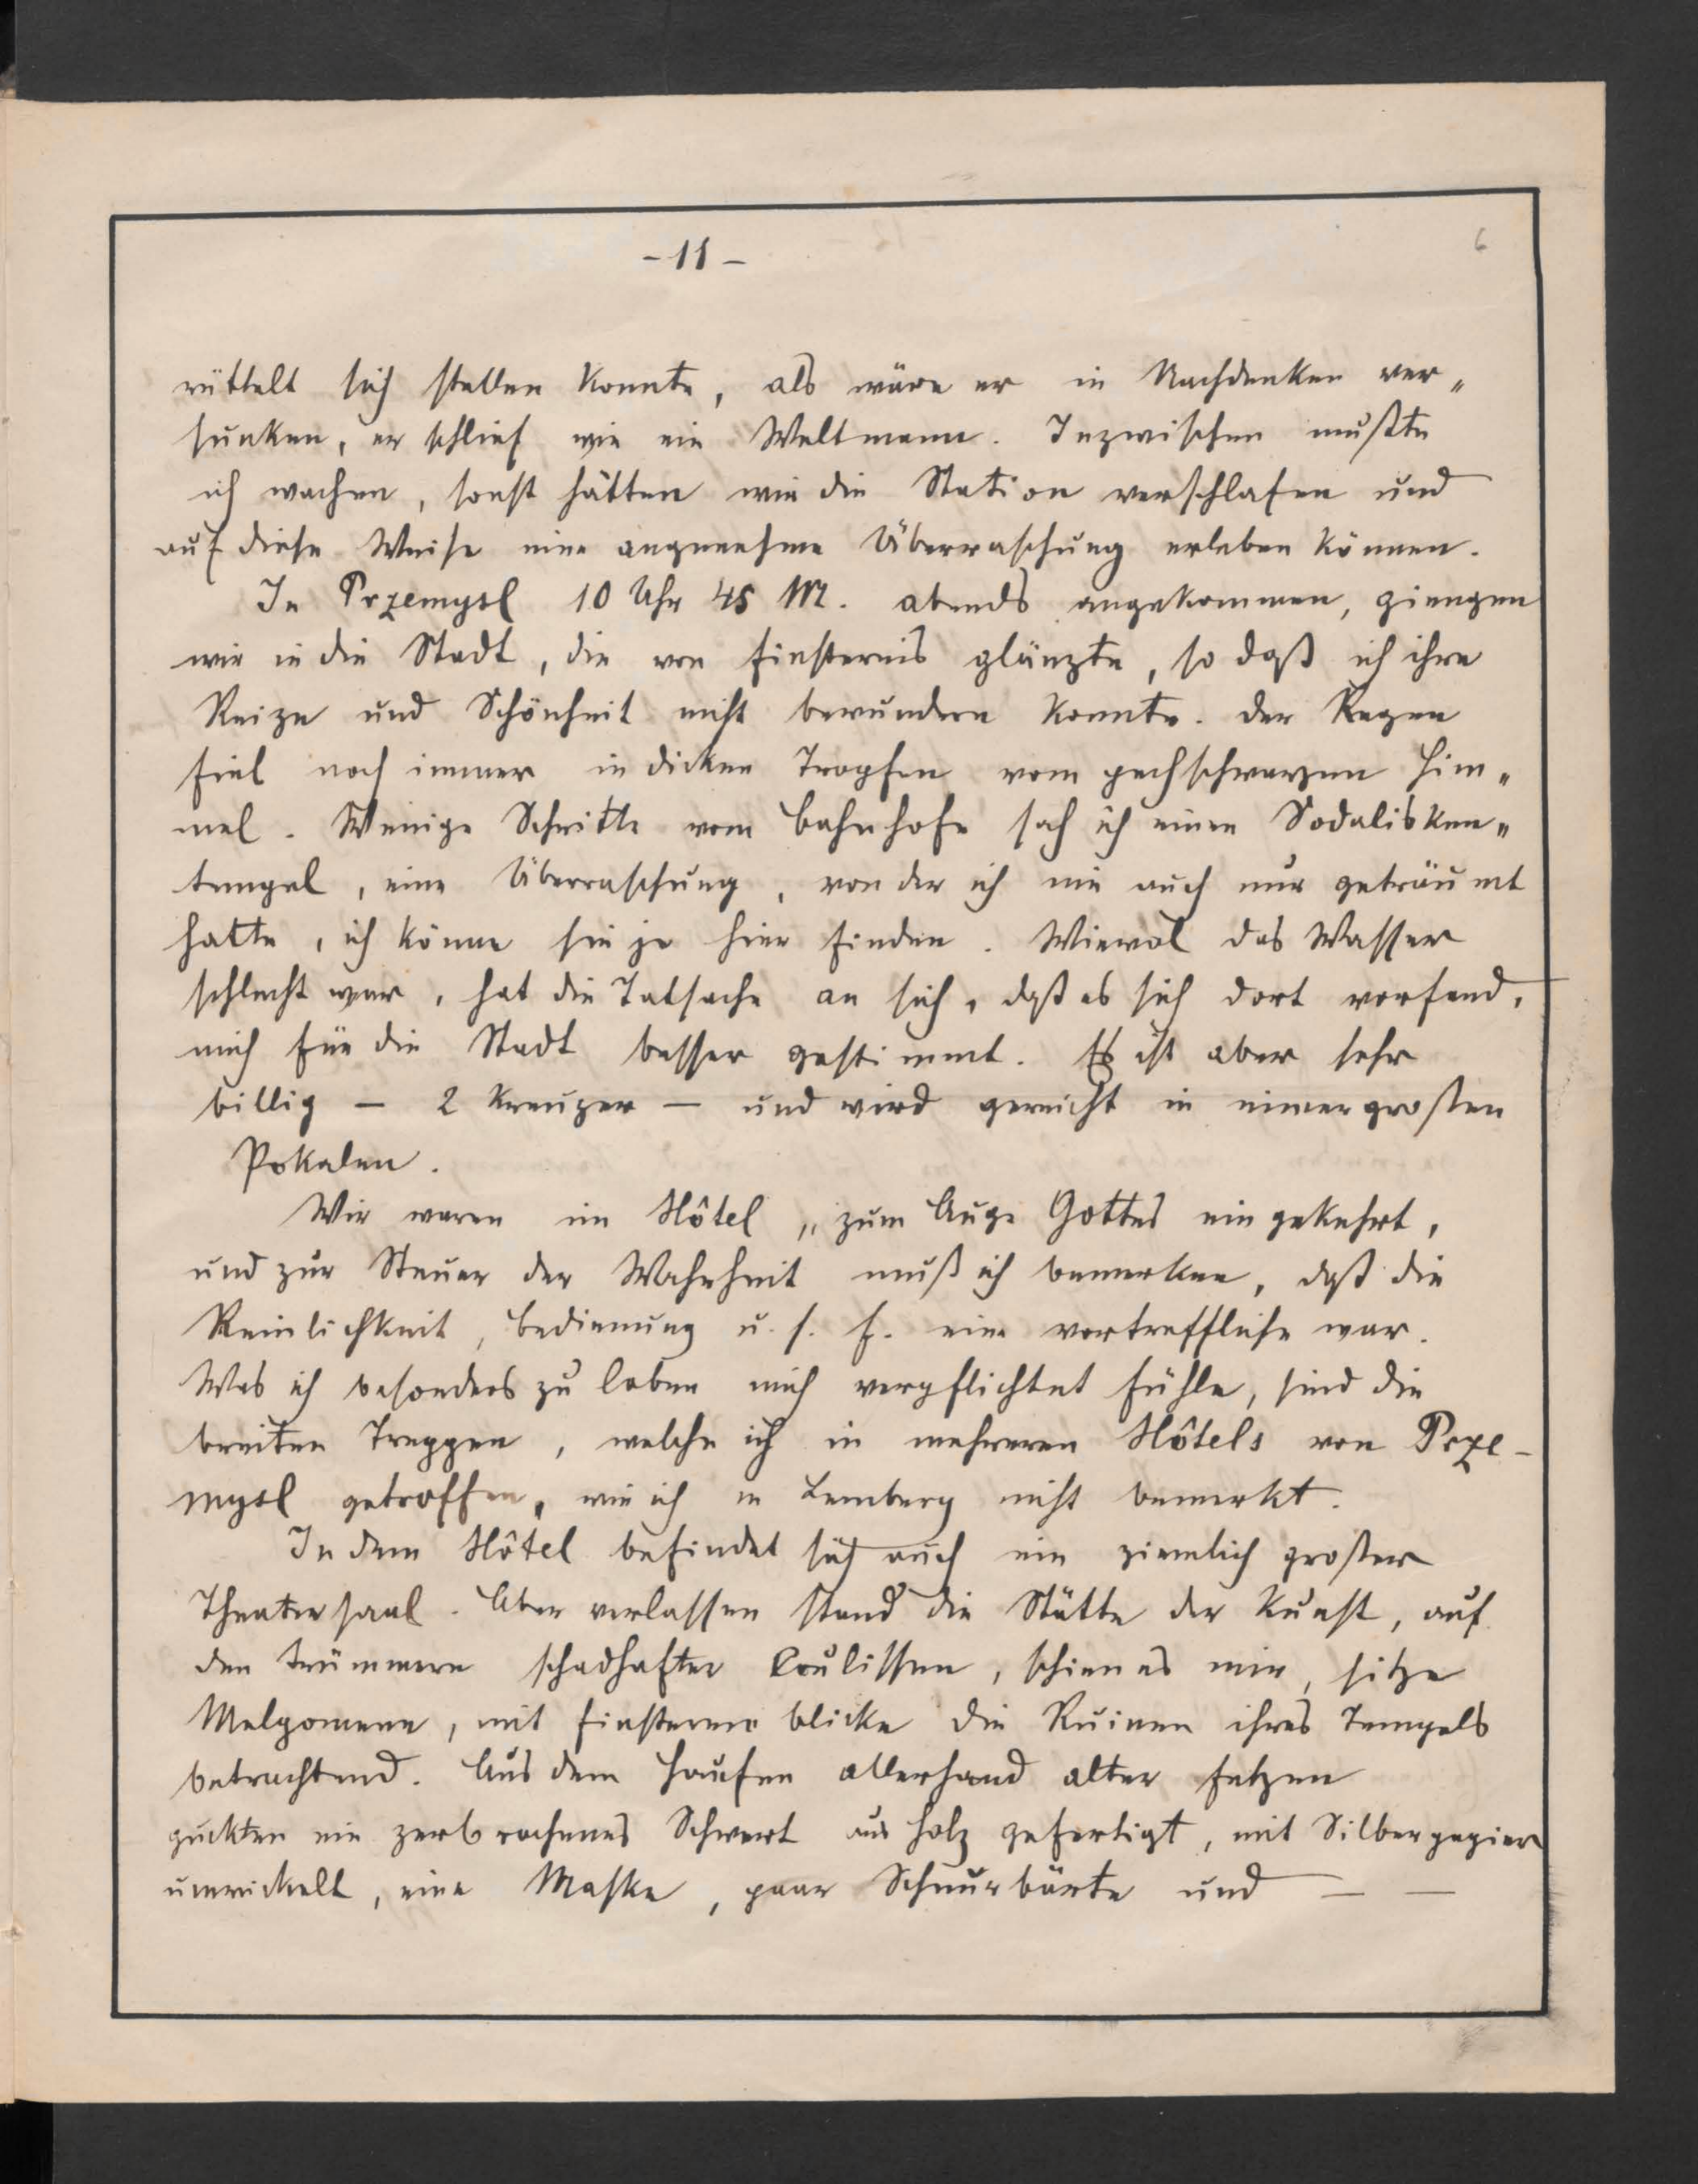 - 11 -
6
rüttelt sich stellen konnte, als wäre er in Nachdenken ver„
sunken, er schlief wie ein Weltmann. Inzwischen mußte
ich wachen, sonst hätten wir die Station verschlafen und
auf diese Weise eine angenehme Überraschung erleben können.
In Przemysl 10 Uhr 45 M. abends angekommen, giengen
wir in die Stadt, die von Finsternis glänzte, so daß ich ihre
Reize und Schönheit nicht bewundern konnte. Der Regen
fiel noch immer in dicken Tropfen vom pechschwarzen Him„
mel. Wenige Schritte vom Bahnhofe sah ich einen Sodalisken„
tempel, eine Überraschung, von der ich nie auch nur geträumt
hatte, ich könne sie je hier finden. Wiewol das Wasser
schlecht war, hat die Tatsache an sich, daß es sich dort vorfand,
mich für die Stadt besser gestimmt. Es ist aber sehr
billig — 2 Kreuzer — und wird gereicht in eimergroßen
Pokalen.
Wir waren im Hôtel „zum Auge Gottes eingekehrt,
und zur Steuer der Wahrheit muß ich bemerken, daß die
Reinlichkeit, Bedienung u. s. f. eine vortreffliche war.
Was ich besonders zu loben mich verpflichtet fühle, sind die
breiten Treppen, welche ich in mehreren Hôtels von Prze-
mysl getroffen, wie ich in Lemberg nicht bemerkt.
In dem Hôtel befindet sich auch ein ziemlich großer
Theatersaal. Aber verlassen stand die Stätte der Kunst, auf
den Trümmern schadhafter Coulissen, schien es mir, sitze
Melpomene, mit finsterem Blicke die Ruinen ihres Tempels
betrachtend. Aus dem Haufen allerhand alter Fetzen
guckten ein zerbrochenes Schwert aus Holz gefertigt, mit Silberpapier
umwickelt, eine Maske, paar Schnurbärte und — —